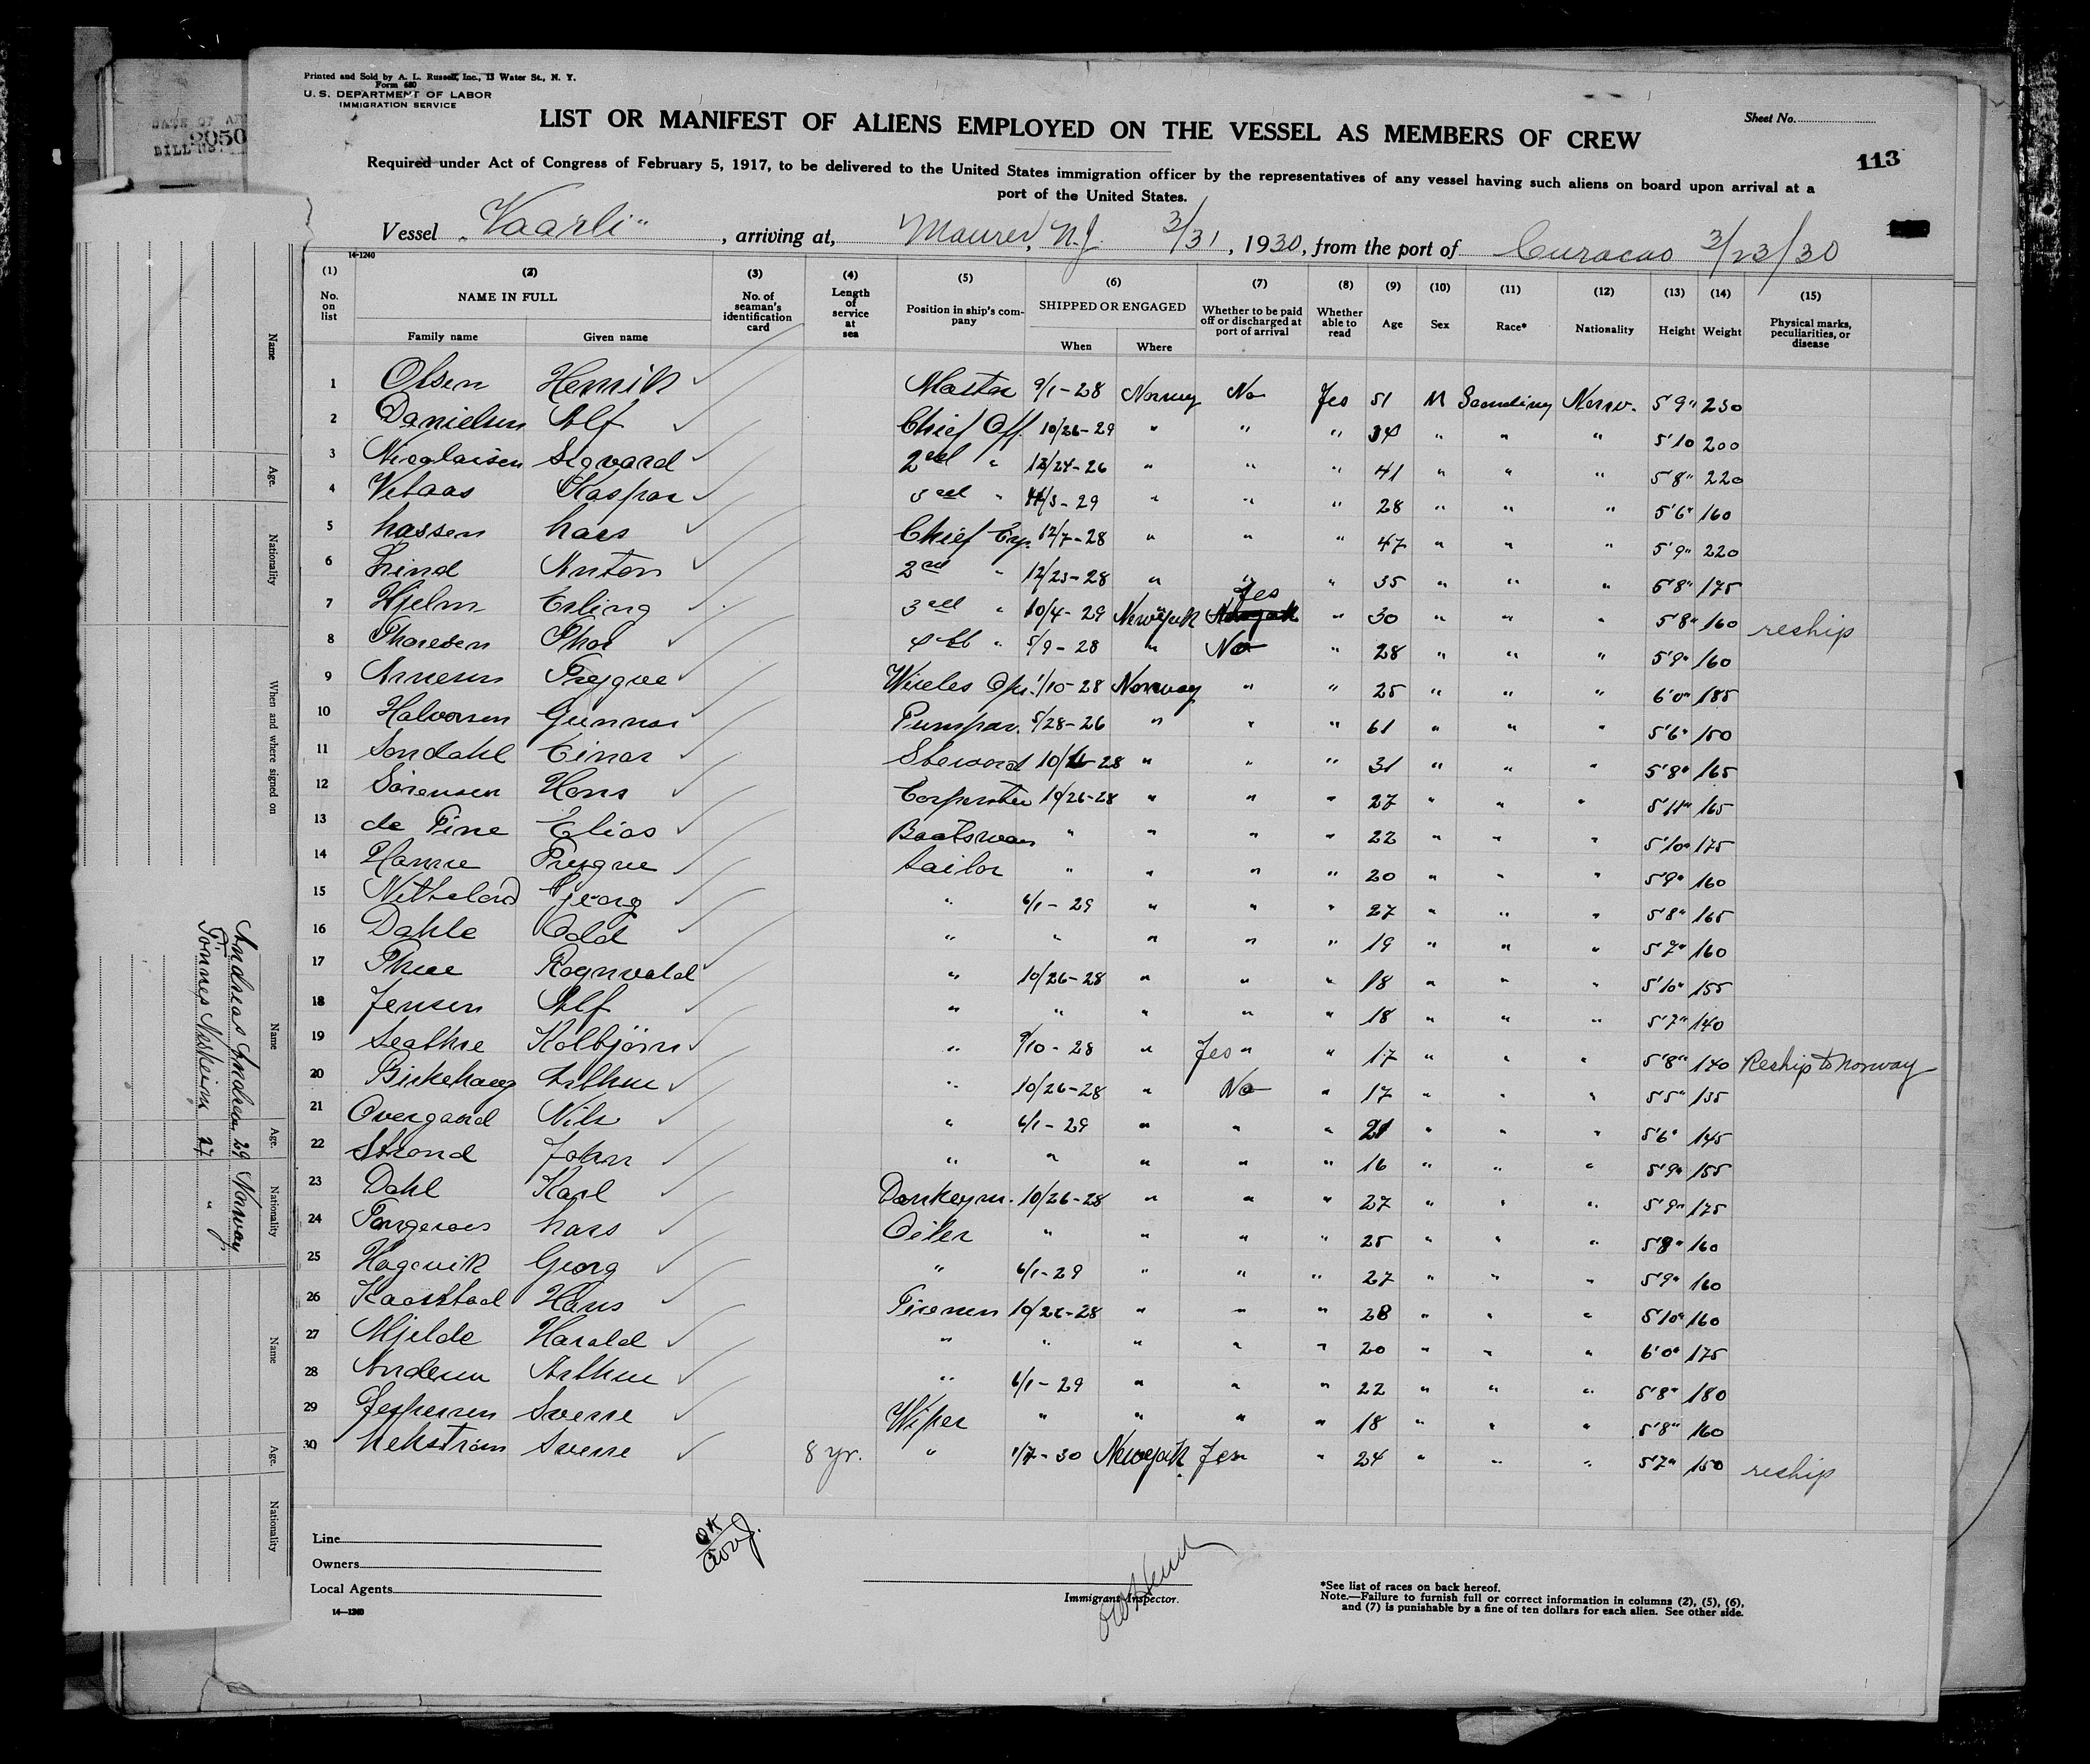 Printed and Sold by A. L. Russell, Inc., 13 Water St., N. Y.
Form 680
U. S. DEPARTMENT OF LABOR
IMMIGRATION SERVICE
2050
LIST OR MANIFEST OF ALIENS EMPLOYED ON THE VESSEL AS MEMBERS OF CREW
Sheet No.
113
Required under Act of Congress of February 5, 1917, to be delivered to the United States immigration officer by the representatives of any vessel having such aliens on board upon arrival at a
port of the United States.
Vessel "Vaarli", arriving at, Maurer, N.J. 3/31, 1930, from the port of Curacao 3/23/30
14-1240
(1) (2) (3) (4) (5) (6) (7) (8) (9) (10) (11) (12) (13) (14) (15)
No. on list NAME IN FULL Family name Given name No. of seaman's identification card Length of service at sea Position in ship's company SHIPPED OR ENGAGED When Where Whether to be paid off or discharged at port of arrival Whether able to read Age Sex Race* Nationality Height Weight Physical marks, peculiarities, or disease
1 Olsen Henrik Master 9/1-28 Norway No Yes 51 M Norw. 5'9" 230
2 Danielsen Alf Chief Off. 10/26-29 " " " 34 " " " 5'10 200
3 Nicolaisen Sigvard 2nd " 12/24-26 " " " 41 " " " 5'8" 220
4 Kaspar 3rd " " " " 28 " " " 5'6" 160
5 Lassen Lars Chief 12/7-28 " " " 47 " " " 5'9" 220
6 Lind Anton 2nd " 12/23-28 " " " 35 " " " 5'8" 175
7 Hjelm Erling 3rd " 10/4-29 Newyork Yes " 30 " " " 5'8" 160 reship
8 Thoresen Thor 4th " 5/9-28 " No " 28 " " " 5'9" 160
9 Arnesen Trygve Wireles Opr. 1/10-28 Norway " " 25 " " " 6'0" 185
10 Halvorsen Gunnar Pumpan. 5/28-26 " " " 61 " " " 5'6" 150
11 Sondahl Einar Steward " " " 31 " " " 5'8" 165
12 Sörensen Hans Carpenter 10/26-28 " " " 27 " " " 5'11" 165
13 de Fine Elias Boatswan " " " " 22 " " " 5'10" 175
14 Trygve Sailor " " " " 20 " " " 5'9" 160
15 Georg " 6/1-29 " " " 27 " " " 5'8" 165
16 Dahle Odd " " " " " 19 " " " 5'7" 160
17 Thue Ragnvald " 10/26-28 " " " 18 " " " 5'10" 155
18 Jensen Alf " " " " " 18 " " " 5'7" 140
19 Kolbjörn " 9/10-28 " Yes " " 17 " " " 5'8" 140 Reship to Norway
20 Birkehaug Arthur " 10/26-28 " No " 17 " " " 5'5" 135
21 Overgaard Nils " 6/1-29 " " " 21 " " " 5'6" 145
22 Strand John " " " " " 16 " " " 5'9" 155
23 Dahl Karl Donkeym. 10/26-28 " " " 27 " " " 5'9" 175
24 Lars Oiler " " " " 25 " " " 5'8" 160
25 Hagevik Georg " 6/1-29 " " " 27 " " " 5'9" 160
26 Hans Firemen 10/26-28 " " " 28 " " " 5'10" 160
27 Mjelde Harald " " " " " 20 " " " 6'0" 175
28 Andersen Arthur " 6/1-29 " " " 22 " " " 5'8" 180
29 Jespersen Sverre Wiper " " " " 18 " " " 5'8" 160
30 Sverre 8 yr. " 1/7-30 Newyork Yes " 24 " " " 5'7" 150 reship
Line
Owners
Local Agents
14-1240
OK
Immigrant Inspector.
*See list of races on back hereof.
Note.—Failure to furnish full or correct information in columns (2), (5), (6),
and (7) is punishable by a fine of ten dollars for each alien. See other side.
Name
Age.
Nationality
When and where signed on
Name
Age.
Nationality
Name
Age.
Nationality
Andreas Andersen 29 Norway
Tönnes Neskeim 27 "